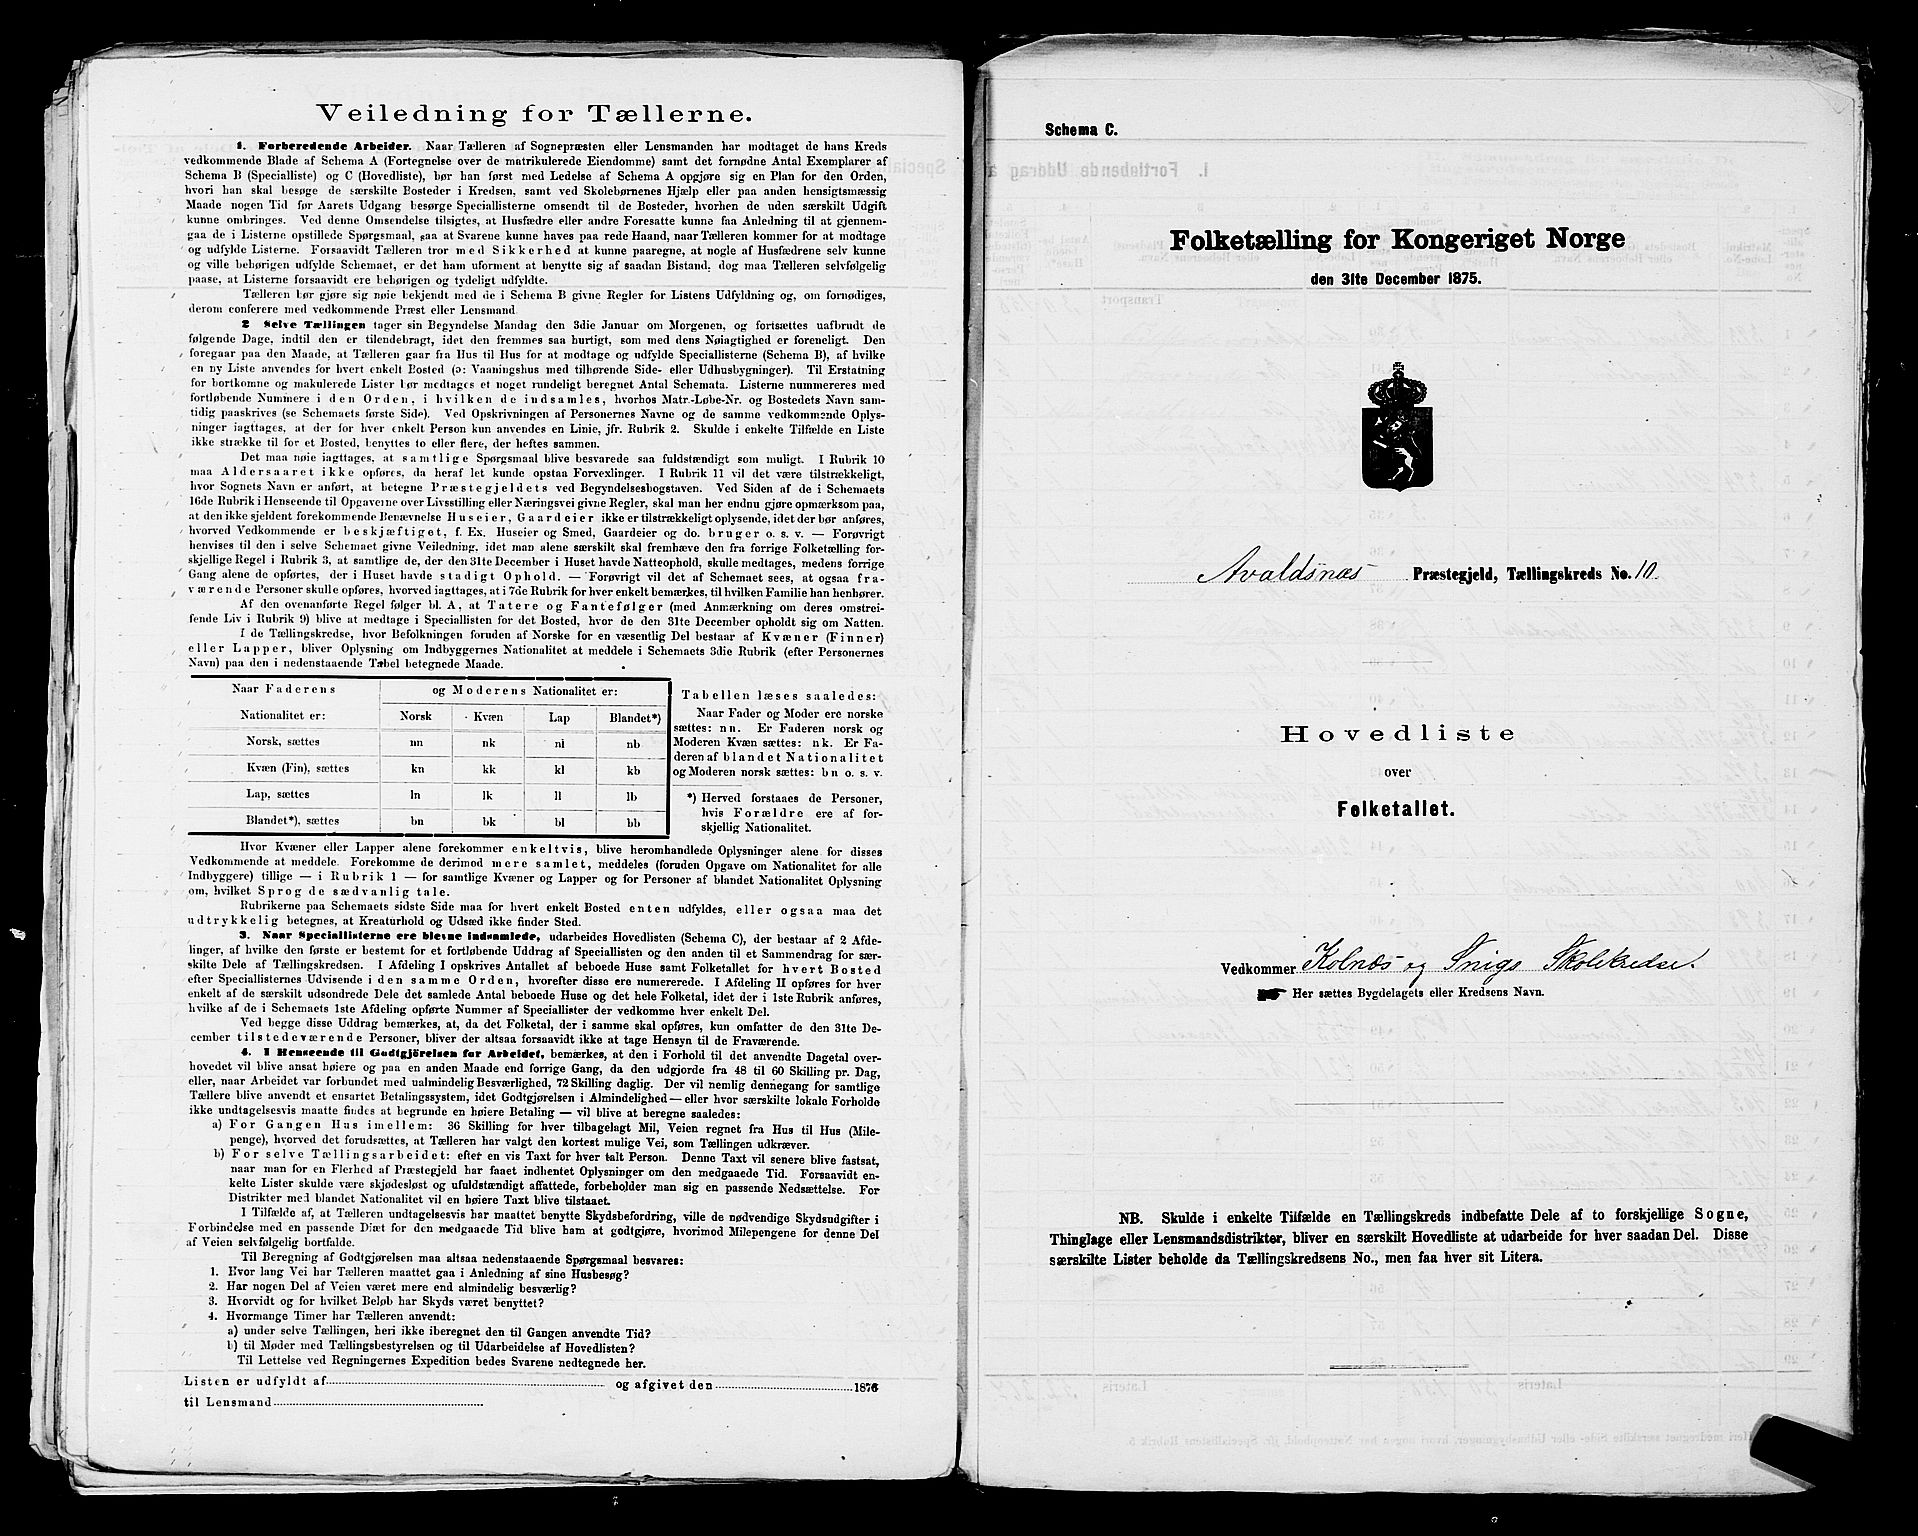 Veiledning for Tællerne.
1. Forberedende Arbeider. Naar Tælleren af Sognepræsten eller Lensmanden har modtaget de hans Kreds
vedkommende Blade af Schema A (Fortegnelse over de matrikulerede Eiendomme) samt det fornødne Antal Exemplarer af
Schema B (Specialliste) og C (Hovedliste), bør han først med Ledelse af Schema A opgjøre sig en Plan for den Orden,
hvori han skal besøge de særskilte Bosteder i Kredsen, samt ved Skolebørnenes Hjælp eller paa anden hensigtsmæssig
Maade nogen Tid før Aarets Udgang besørge Speciallisterne omsendt til de Bosteder, hvorhen de uden særskilt Udgift
kunne ombringes. Ved denne Omsendelse tilsigtes, at Husfædre eller andre Foresatte kunne faa Anledning til at gjennem-
gaa de i Listerne opstillede Spørgsmaal, saa at Svarene kunne haves paa rede Haand, naar Tælleren kommer for at modtage
og udfylde Listerne. Forsaavidt Tælleren tror med Sikkerhed at kunne paaregne, at nogle af Husfædrene selv kunne
og ville behørigen udfylde Schemaet, er det ham uforment at benytte sig af saadan Bistand, dog maa Tælleren selvfølgelig
paase, at Listerne forsaavidt ere behørigen og tydeligt udfyldte.
Tælleren bør gjøre sig nøie bekjendt med de i Schema B givne Regler for Listens Udfyldning og, om fornødiges,
derom conferere med vedkommende Præst eller Lensmand
2 Selve Tællingen tager sin Begyndelse Mandag den 3die Januar om Morgenen, og fortsættes uafbrudt de
følgende Dage, indtil den er tilendebragt, idet den fremmes saa hurtigt, som med dens Nøiagtighed er foreneligt. Den
foregaar paa den Maade, at Tælleren gaar fra Hus til Hus for at modtage og udfylde Speciallisterne (Schema B), af hvilke
en ny Liste anvendes for hvert enkelt Bosted (ɔ: Vaaningshus med tilhørende Side- eller Udhusbygninger). Til Erstatning
for bortkomne og makulerede Lister bør medtages et noget rundeligt beregnet Antal Schemata. Listerne nummereres med
fortløbende Nummere i den Orden, i hvilken de indsamles, hvorhos Matr.-Løbe-Nr. og Bostedets Navn sam-
tidig paaskrives (se Schemaets første Side). Ved Opskrivningen af Personernes Navne og de samme vedkommende Oplys-
ninger iagttages, at der for hver enkelt Person kun anvendes en Linie, jfr. Rubrik 2. Skulde i enkelte Tilfælde en Liste
ikke strække til for et Bosted, benyttes to eller flere, der heftes sammen.
Det maa nøie iagttages, at samtlige Spørgsmaal blive besvarede saa fuldstændigt som muligt. I Rubrik 10
maa Aldersaaret ikke opføres, da heraf let kunde opstaa Forvexlinger. I Rubrik 11 vil det være tilstrækkeligt,
hvor Sognets Navn er anført, at betegne Præstegjeldets ved Begyndelsesbogstaven. Ved Siden af de i Schemaets
16de Rubrik i Henseende til Opgaverne over Livsstilling eller Næringsvei givne Regler, skal man her endnu gjøre opmærksom paa,
at den ikke sjeldent forekommende Benævnelse Huseier, Gaardeier ikke er tilstrækkeligt oplysende, idet der bør anføres,
hvorved Vedkommende er beskjæftiget, f. Ex. Huseier og Smed, Gaardeier og do. bruger o. s. v. — Forøvrigt
henvises til den i selve Schemaet givne Veiledning, idet man alene særskilt skal fremhæve den fra forrige Folketælling for-
skjellige Regel i Rubrik 3, at samtlige de, der den 31te December i Huset havde Natteophold, skulle medtages, medens forrige
Gang alene de opførtes, der i Huset havde stadigt Ophold. — Forøvrigt vil det af Schemaet sees, at ogsaa fra-
værende Personer skulle opføres, hvorved iagttages, at i 7de Rubrik for hver enkelt bemærkes, til hvilken Familie han henhører.
Af den ovenanførte Regel følger bl. A, at Tatere og Fantefølger (med Anmærkning om deres omstrei-
fende Liv i Rubrik 9) blive at medtage i Speciallisten for det Bosted, hvor de den 31te December opholdt sig om Natten.
I de Tællingskredse, hvor Befolkningen foruden af Norske for en væsentlig Del bestaar af Kvæner (Finner)
eller Lapper, bliver Oplysning om Indbyggernes Nationalitet at meddele i Schemaets 3die Rubrik (efter Personernes
Navn) paa den i nedenstaaende Tabel betegnede Maade.
Naar Faderens og Moderens Nationalitet er:
Nationalitet er: Norsk Kvæn Lap Blandet*)
Norsk, sættes nn nk nl nb
Kvæn (Fin), sættes kn kk kl kb
Lap, sættes ln lk ll lb
Blandet*), sættes bn bk bl bb
Tabellen læses saaledes:
Naar Fader og Moder ere norske
sættes: nn. Er Faderen norsk og
Moderen Kvæn sættes: nk. Er Fa-
deren af blandet Nationalitet
og Moderen norsk sættes: bn o. s. v.
*) Herved forstaaes de Personer,
hvis Forældre ere af for-
skjellig Nationalitet.
Hvor Kvæner eller Lapper alene forekommer enkeltvis, blive heromhandlede Oplysninger alene for disses
Vedkommende at meddele. Forekomme de derimod mere samlet, meddeles (foruden Opgave om Nationalitet for alle
Indbyggere) tillige — i Rubrik 1 — for samtlige Kvæner og Lapper og for Personer af blandet Nationalitet Oplysning
om, hvilket Sprog de sædvanlig tale.
Rubrikerne paa Schemaets sidste Side maa for hvert enkelt Bosted enten udfyldes, eller ogsaa maa det
udtrykkelig betegnes, at Kreaturhold og Udsæd ikke finder Sted.
3. Naar Speciallisterne ere blevne indsamlede, udarbeides Hovedlisten (Schema C), der bestaar af 2 Afde-
linger, af hvilke den første er bestemt for et fortløbende Uddrag af Speciallisten og den anden til et Sammendrag for sær-
skilte Dele af Tællingskredsen. I Afdeling I opskrives Antallet af beboede Huse samt Folketallet for hvert Bosted
efter Speciallisternes Udvisende i den samme Orden, hvorefter disse ere numererede. I Afdeling II opføres for hver
enkelt af de særskilt udsondrede Dele det samlede Antal beboede Huse og det hele Folketal, idet der i 1ste Rubrik anføres,
hvilke af de i Schemaets 1ste Afdeling opførte Nummer af Speciallister der vedkomme hver enkelt Del.
Ved begge disse Uddrag bemærkes, at, da det Folketal, der i samme skal opføres, kun omfatter de den 31te De-
cember tilstedeværende Personer, bliver der altsaa forsaavidt ikke at tage Hensyn til de Fraværende.
4. I Henseende til Godtgjörelsen for Arbeidet, bemærkes, at den i Forhold til det anvendte Dagetal over-
hovedet vil blive ansat høiere og paa en anden Maade end forrige Gang, da den udgjorde fra 48 til 60 Skilling pr. Dag,
eller, naar Arbeidet var forbundet med ualmindelig Besværlighed, 72 Skilling daglig. Der vil nemlig dennegang for samtlige
Tællere blive anvendt et ensartet Betalingssystem, idet Godtgjörelsen i Almindelighed — eller hvor særskilte lokale Forholde
ikke undtagelsesvis maatte findes at begrunde en høiere Betaling — vil blive at beregne saaledes:
a) For Gangen Hus imellem: 36 Skilling for hver tilbagelagt Mil, Veien regnet fra Hus til Hus (Mile-
penge), hvorved det forudsættes, at Tælleren har valgt den kortest mulige Vei, som Tællingen udkræver.
b) For selve Tællingsarbeidet: efter en vis Taxt for hver talt Person. Denne Taxt vil senere blive fastsat,
naar man for en Flerhed af Præstegjeld har faaet indhentet Oplysninger om den medgaaede Tid. Forsaavidt en-
kelte Lister skulde være skjødesløst og ufuldstændigt affattede, forbeholder man sig en passende Nedsættelse. For
Distrikter med blandet Nationalitet vil en høiere Taxt blive tilstaaet.
I Tilfælde af, at Tælleren undtagelsesvis har maattet benytte Skydsbefordring, ville de nødvendige Skydsudgifter i
Forbindelse med en passende Diæt for den medgaaede Tid blive ham at godtgjøre, hvorimod Milepengene for denne Del
af Veien selvfølgelig bortfalde.
Til Beregning af Godtgjørelsen maa altsaa nedenstaaende Spørgsmaal besvares:
1. Hvor lang Vei har Tælleren maattet gaa i Anledning af sine Husbesøg?
2. Har nogen Del af Veien været mere end almindelig besværlig?
3. Hvorvidt og for hvilket Beløb har Skyds været benyttet?
4. Hvormange Timer har Tælleren anvendt:
a) under selve Tællingen, heri ikke iberegnet den til Gangen anvendte Tid?
b) til Møder med Tællingsbestyrelsen og til Udarbeidelse af Hovedlisten?
Til Lettelse ved Regningernes Expedition bedes Svarene nedtegnede her.
Listen er udfyldt af og afgivet den 1876
til Lensmand
Schema C.
Folketælling for Kongeriget Norge
den 31te December 1875.
Avaldsnæs Præstegjeld, Tællingskreds No. 10.
Hovedliste
over
Folketallet.
Vedkommer Kolnæs og Snigs Skolekredse.
Her sættes Bygdelagets eller Kredsens Navn.
NB. Skulde i enkelte Tilfælde en Tællingskreds indbefatte Dele af to forskjellige Sogne,
Thinglage eller Lensmandsdistrikter, bliver en særskilt Hovedliste at udarbeide for hver saadan Del. Disse
særskilte Lister beholde da Tællingskredsens No., men faa hver sit Litera.